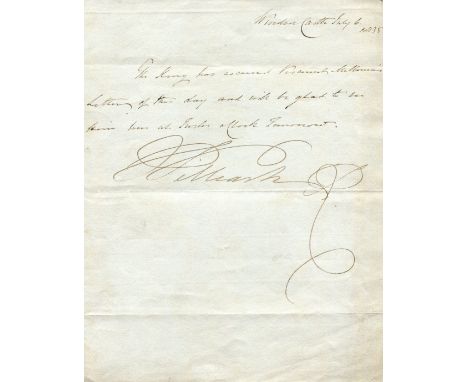 Windsor Castle July 6.
1835
The King has received Viscount Melbourne's
Letter of this day and will be glad to see
him here at Twelve o'Clock Tomorrow.
William R